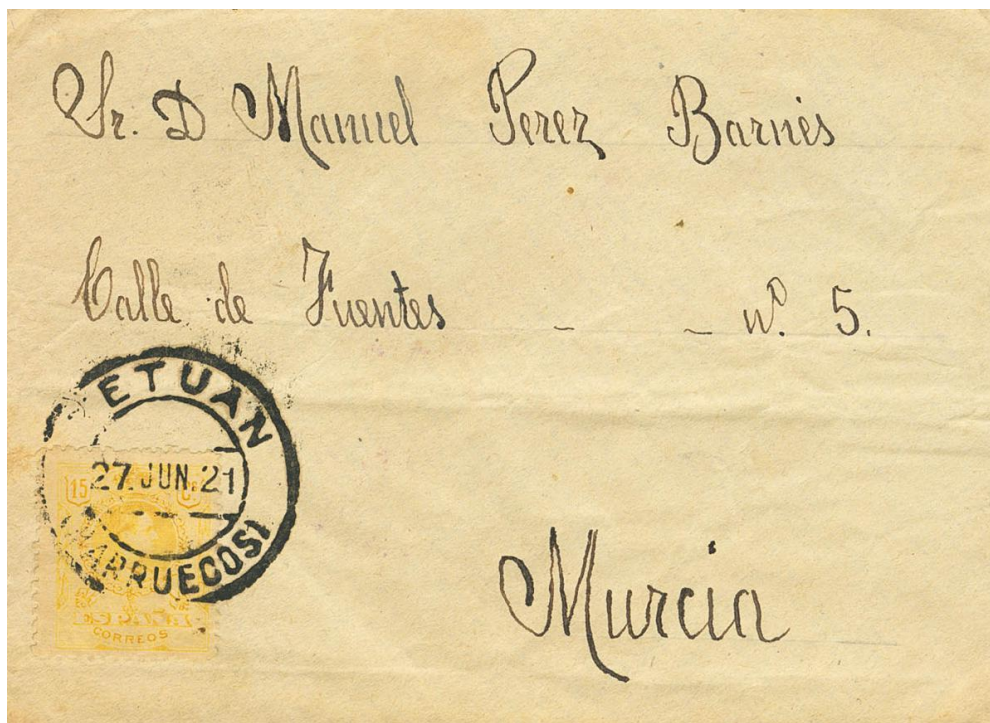 Sr. D Manuel Perez Barnés
Calle de Fuentes - - nº 5.
ETUAN
27. JUN. 21
ARRUECOS)
15 Cs
CORREOS
Murcia